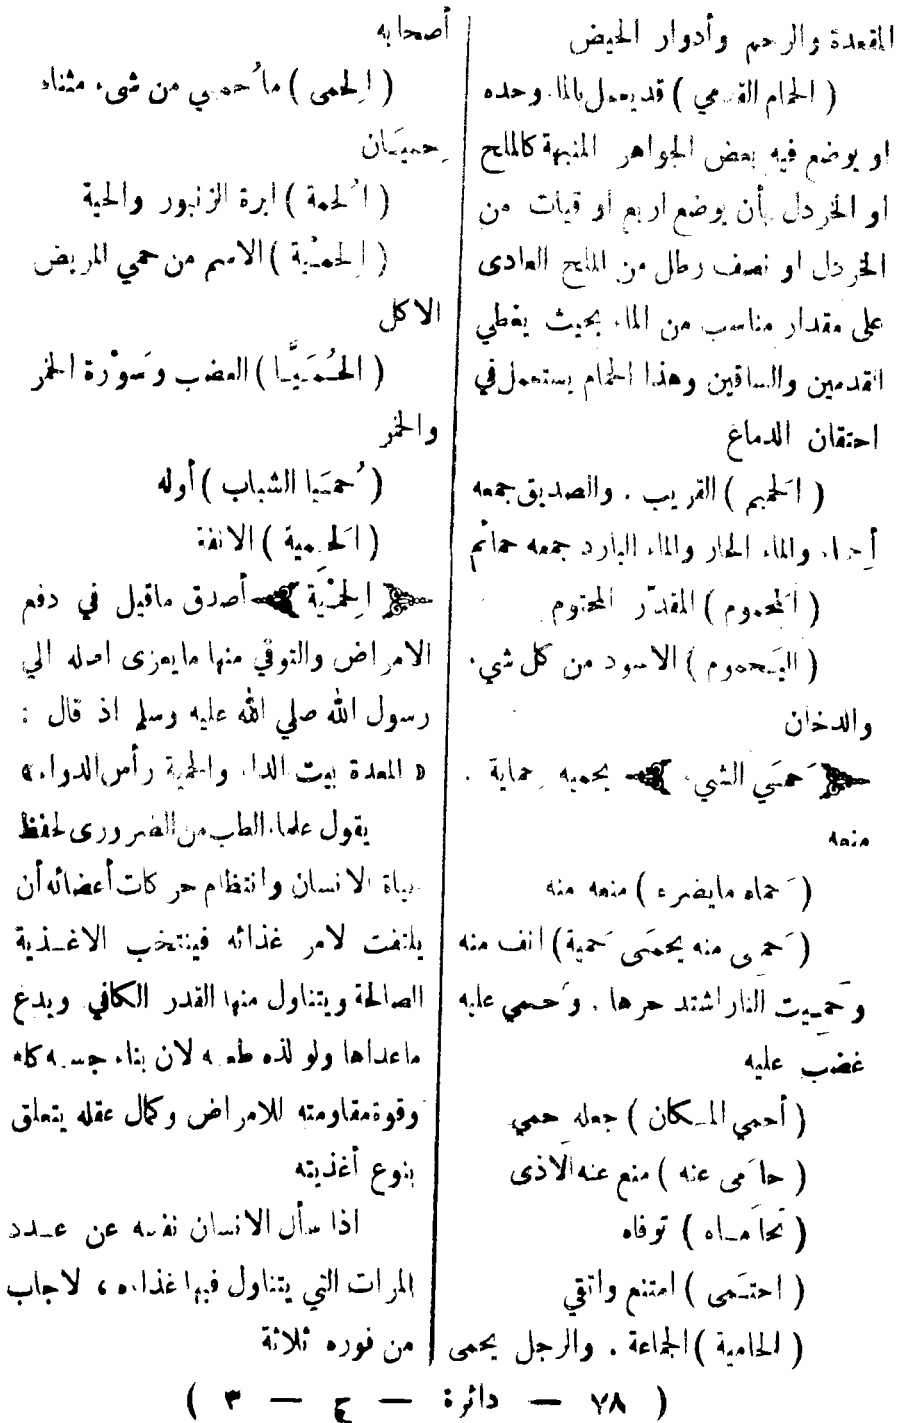 المقعدة والرحم وأدوار الحيض
( الحمام القدمي ) قد يعمل بالماء وحده
او يوضع فيه بعض الجواهر المنبهة كالملح
او الخردل بأن يوضع اربع او قيات من
الخردل او نصف رطل من الملح العادى
على مقدار مناسب من الماء بحيث يغطي
القدمين والساقين وهذا الحمام يستعمل في
احتقان الدماغ
( الَحميم ) القريب . والصديق جمعه
أحماء والماء الحار والماء البارد جمعه حمائم
( المَحموم ) المقدّر المحتوم
( اليَحموم ) الاسود من كل شيء
والدخان
حَمَي الشيء يحميه حِماية .
منعه
( حَماه مايضره ) منعه منه
( حَمِى منه يحمَى حَمية ) انف منه
وحَمِيت النار اشتد حرها . وحَمي عليه
غضب عليه
( أحمي المكان ) جعله حمي
( حامَى عنه ) منع عنه الاذى
( تحامَاه ) توقاه
( احتَمى ) امتنع واتقي
( الحامية ) الجماعة . والرجل يحمى
أصحابه
( الِحمى ) ماحُمي من شىء مثناه
حِميَان
( الُحمة ) ابرة الزنبور والحية
( الِحمْية ) الاسم من حمي المريض
الاكل
( الحُمَيَّا ) الغضب وسَوْرة الخمر
والخمر
( حُمَيا الشباب ) أوله
( الَحمية ) الانفة
الِحمْيَة أصدق ماقيل في دفع
الامراض والتوقي منها مايعزى اصله الي
رسول الله صلي الله عليه وسلم اذ قال :
« المعدة بيت الداء والحمية رأس الدواء »
يقول علماء الطب من الضرورى لحفظ
حياة الانسان وانتظام حركات أعضائه أن
يلتفت لامر غذائه فينتخب الاغذية
الصالحة ويتناول منها القدر الكافي ويدع
ماعداها ولو لذه طعمه لان بناء جسمه كله
وقوة مقاومته للامراض وكمال عقله يتعلق
بنوع أغذيته
اذا سأل الانسان نفسه عن عدد
المرات التي يتناول فيها غذاءه ، لاجاب
من فوره ثلاثة
( ٧٨ — دائرة — ج — ٣ )